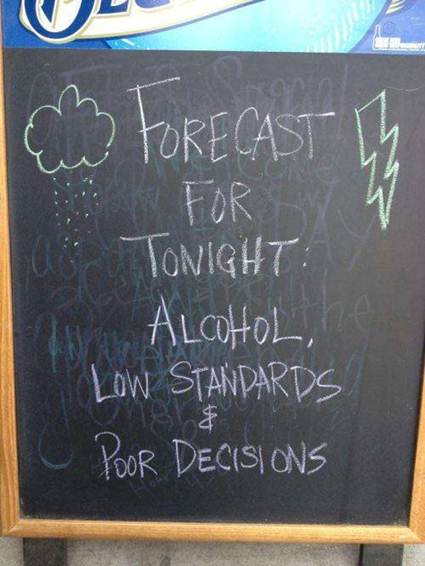 FORECAST
FOR
TONIGHT:
ALCOHOL,
LOW STANDARDS
&
POOR DECISIONS